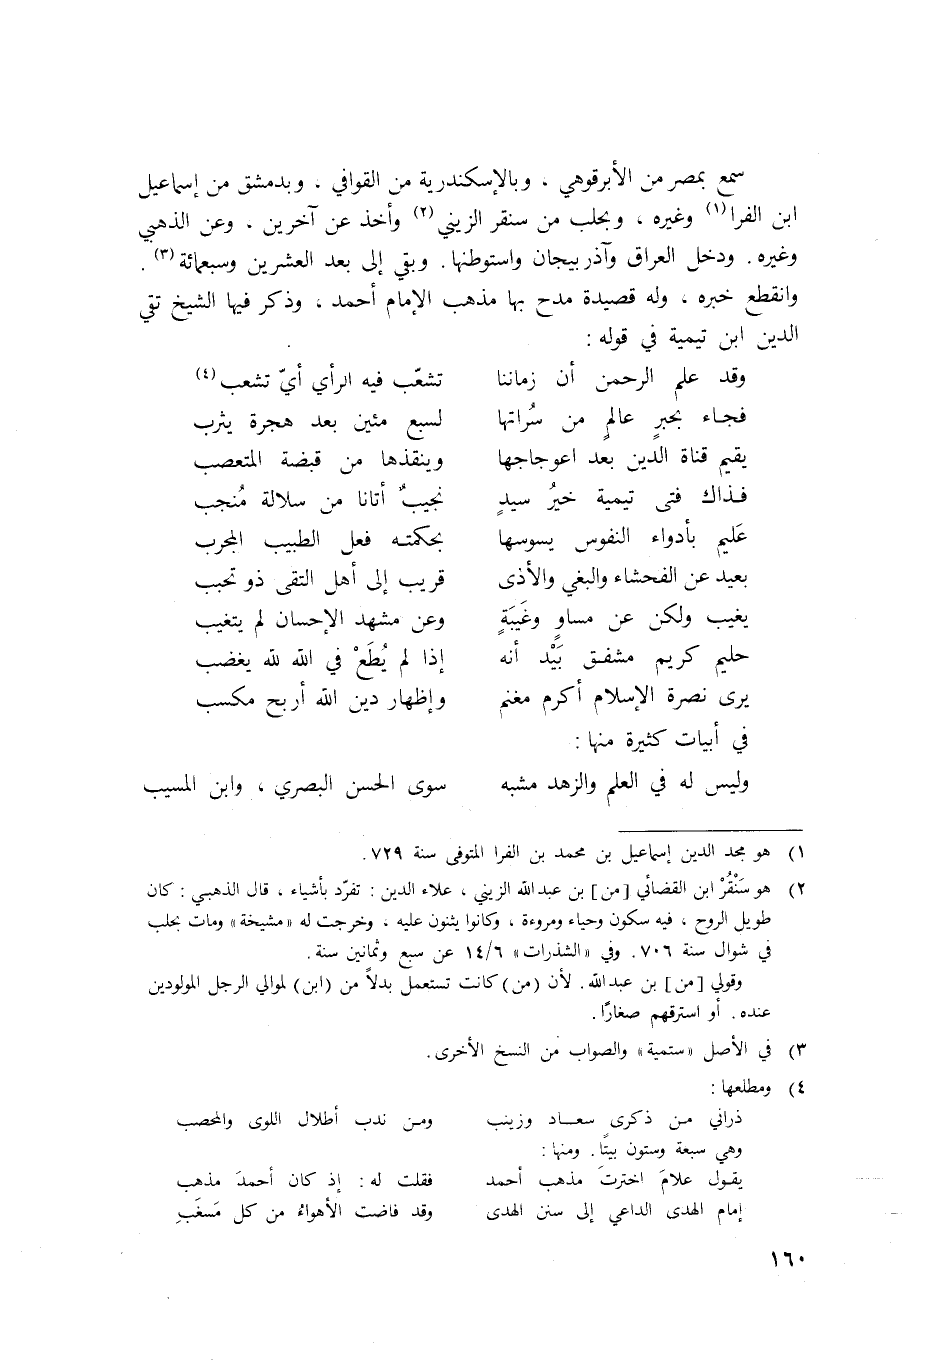 سمع بمصر من الأبرقوهي ، وبالإسكندرية من القوافي ، وبدمشق من إسماعيل
ابن الفرا(١) وغيره ، وبحلب من سنقر الزيني(٢) وأخذ عن آخرين ، وعن الذهبي
وغيره . ودخل العراق وآذربيجان واستوطنها . وبقي إلى بعد العشرين وسبعمائة(٣) .
وانقطع خبره ، وله قصيدة مدح بها مذهب الإمام أحمد ، وذكر فيها الشيخ تقي
الدين ابن تيمية في قوله :
وقد علم الرحمن أن زماننا تشعّب فيه الرأي أيّ تشعب(٤)
فجاء بحبرٍ عالمٍ من سُراتها لسبع مئين بعد هجرة يثرب
يقيم قناة الدين بعد اعوجاجها وينقذها من قبضة المتعصب
فذاك فتى تيمية خيرُ سيدٍ نجيبٌ أتانا من سلالة مُنجب
عَليم بأدواء النفوس يسوسها بحكمته فعل الطبيب المجرب
بعيد عن الفحشاء والبغي والأذى قريب إلى أهل التقى ذو تحبب
يغيب ولكن عن مساوٍ وغَيبَةٍ وعن مشهد الإحسان لم يتغيب
حليم كريم مشفق بَيْد أنه إذا لم يُطَعْ في الله لله يغضب
يرى نصرة الإسلام أكرم مغنم وإظهار دين الله أربح مكسب
في أبيات كثيرة منها :
وليس له في العلم والزهد مشبه سوى الحسن البصري ، وابن المسيب
١) هو مجد الدين إسماعيل بن محمد بن الفرا المتوفى سنة ٧٢٩ .
٢) هو سَنْقُرْ ابن القضائي [من] بن عبدالله الزيني ، علاء الدين : تفرّد بأشياء ، قال الذهبي : كان
طويل الروح ، فيه سكون وحياء ومروءة ، وكانوا يثنون عليه ، وخرجت له «مشيخة» ومات بحلب
في شوال سنة ٧٠٦ . وفي «الشذرات» ١٤/٦ عن سبع وثمانين سنة .
وقولي [من] بن عبدالله . لأن (من) كانت تستعمل بدلاً من (ابن) لموالي الرجل المولودين
عنده . أو استرقهم صغارًا .
٣) في الأصل «ستمية» والصواب من النسخ الأخرى .
٤) ومطلعها :
ذراني من ذكرى سعاد وزينب ومن ندب أطلال اللوى والمحصب
وهي سبعة وستون بيتًا . ومنها :
يقول علامَ اخترتَ مذهب أحمد فقلت له : إذ كان أحمدَ مذهب
إمام الهدى الداعي إلى سنن الهدى وقد فاضت الأهواءُ من كل مَسغَبِ
١٦٠